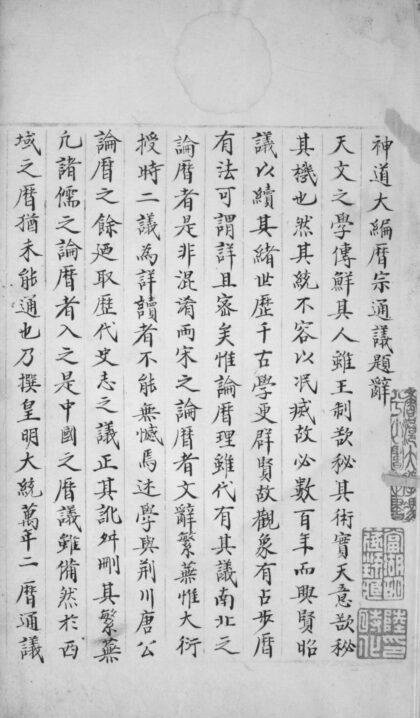 神道大編曆宗通議題辭
天文之學傳鮮其人雖王制欲秘其術實天意欲秘
其機也然其統不容以泯滅故必數百年而興賢昭
議以續其緒世歷千古學更群賢故觀象有占步曆
有法可謂詳且密矣惟論曆理雖代有其議南北之
論曆者是非混淆兩宋之論曆者文辭繁蕪惟大衍
授時二議為詳讀者不能無憾焉述學與荆川唐公
論曆之餘廼取歷代史志之議正其訛舛刪其繁蕪
凢諸儒之論曆者入之是中國之曆議雖備然於西
域之曆猶未能通也乃撰皇明大統萬年二曆通議